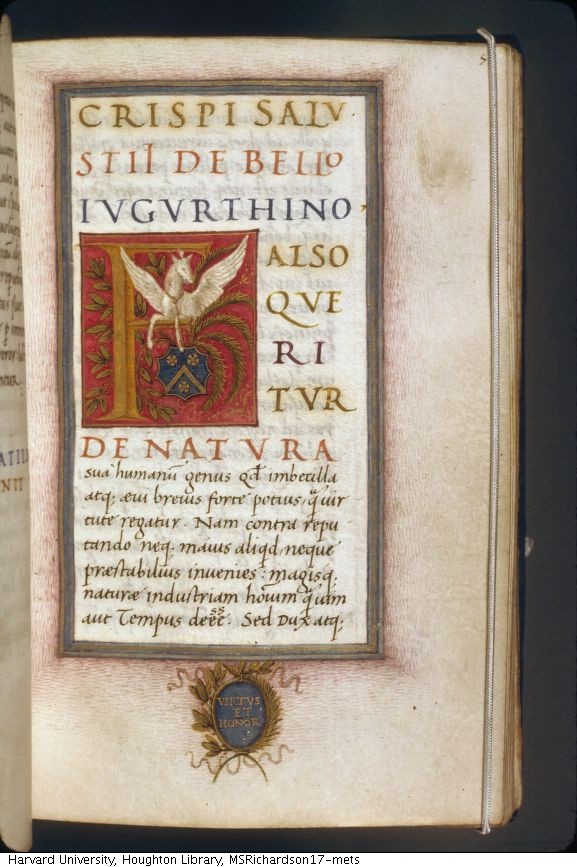 CRISPI SALV
STII DE BELLO
IVGVRTHINO
FALSO
QVE
RI
TVR
DE NATVRA
sua humanū genus qd imbecilla
atq; aeui breuis forte potius, quir
tute regatur. Nam contra repu
tando neq; maius aliqd neque
præstabilius invenies: magisq;
naturæ industriam hoīum quam
aut Tempus deesse. Sed Dux atq;
VIRTVS
ET
HONOR
Harvard University, Houghton Library, MSRichardson17-mets